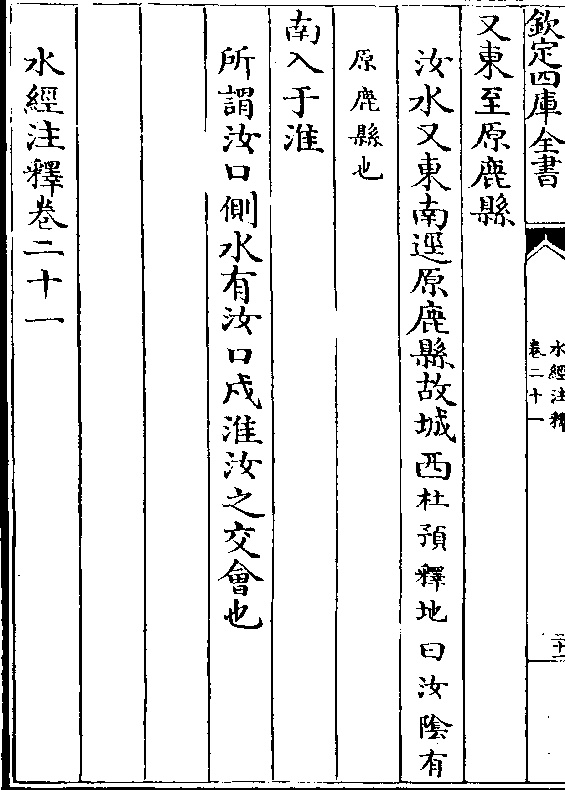 欽定四庫全書
水經注釋
卷二十一
又東至原鹿縣
汝水又東南逕原鹿縣故城西杜預釋地曰汝陰有
原鹿縣也
南入于淮
所謂汝口側水有汝口戍淮汝之交會也
水經注釋卷二十一